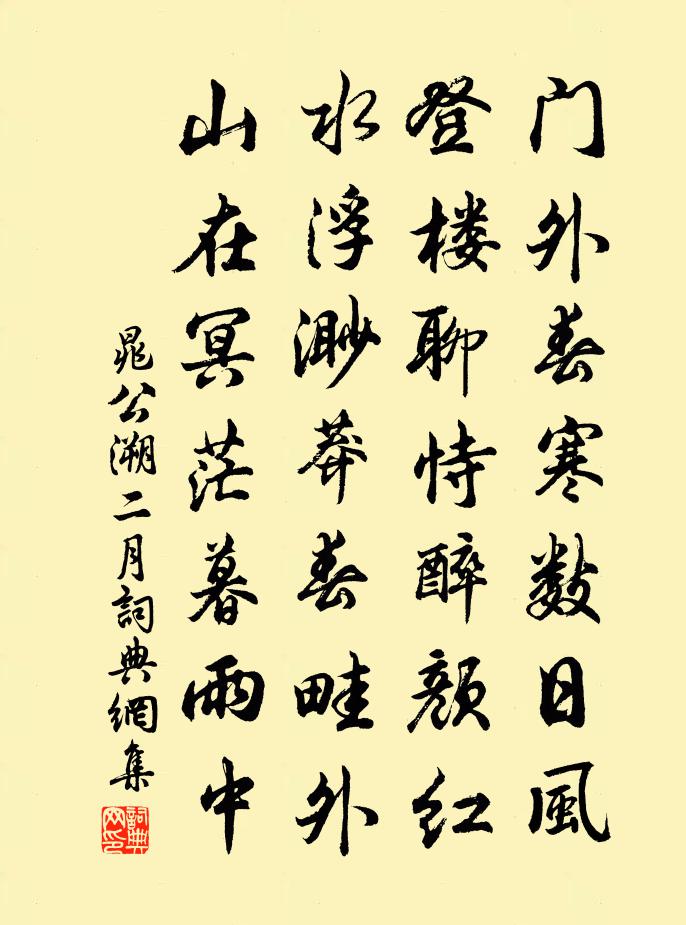 门外春寒数日風
登楼聊恃醉颜红
水浮渺莽春畦外
山在冥茫暮雨中
晁公溯二月詞典網集
詞典网印